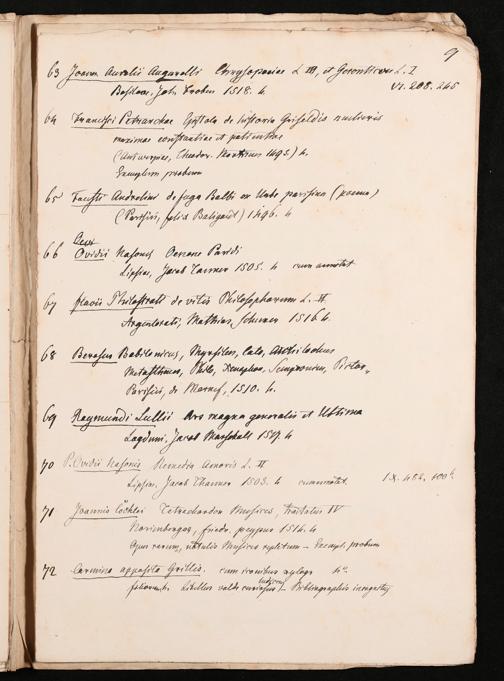 9
63 Joann Aurelii Augurelli Chrysopoeiae L III, et Geronticon L. I
Basileae, Joh. Froben 1518. 4 VI. 208. 245
64 Francisci Petrarchae Epistola de historia Griseldis mulieris
maximae constantiae et patientiae
(Antwerpiae, Theodor. Martinus 1493.) 4.
Exemplum probum
65 Fausti Andrelini de fuga Balbi ex Urbe parisina (poema)
(Parisiis, felix Baligault) 1496. 4
66 Ovidii Nasonis Oenone Paridi
Lipsiae, Jacob Tanner 1505. 4 cum annotat
67 flavii Philostrati de vitis Philosophorum L. II
Argentorati, Mathias Schurer 1516 4.
68 Berosus Babilonicus, Myrsilus, Cato, Archilochus
Metasthenes, Philo, Xenophon, Sempronius, Pictor,
Parisiis, de Marnef, 1510. 4.
69 Raymundi Lullii Ars magna generalis et Ultima
Lugduni, Jacob Marschall 1517. 4
70 P. Ovidii Nasonis Remedia Amoris L. II
Lipsiae, Jacob Thanner 1503. 4 cum notat. IX. 482.
71 Joannis Cöchlei Tetrachordon Musices, tractatus IV
Norimbergae, frider. peypus 1514. 4
Opus rerum, Musices repletum – Exempl. probum
72 Carmina apposita Grillis. cum iconibus xylogr 4°
foliorum Libellus valde curiosus – Bibliographis incognitus